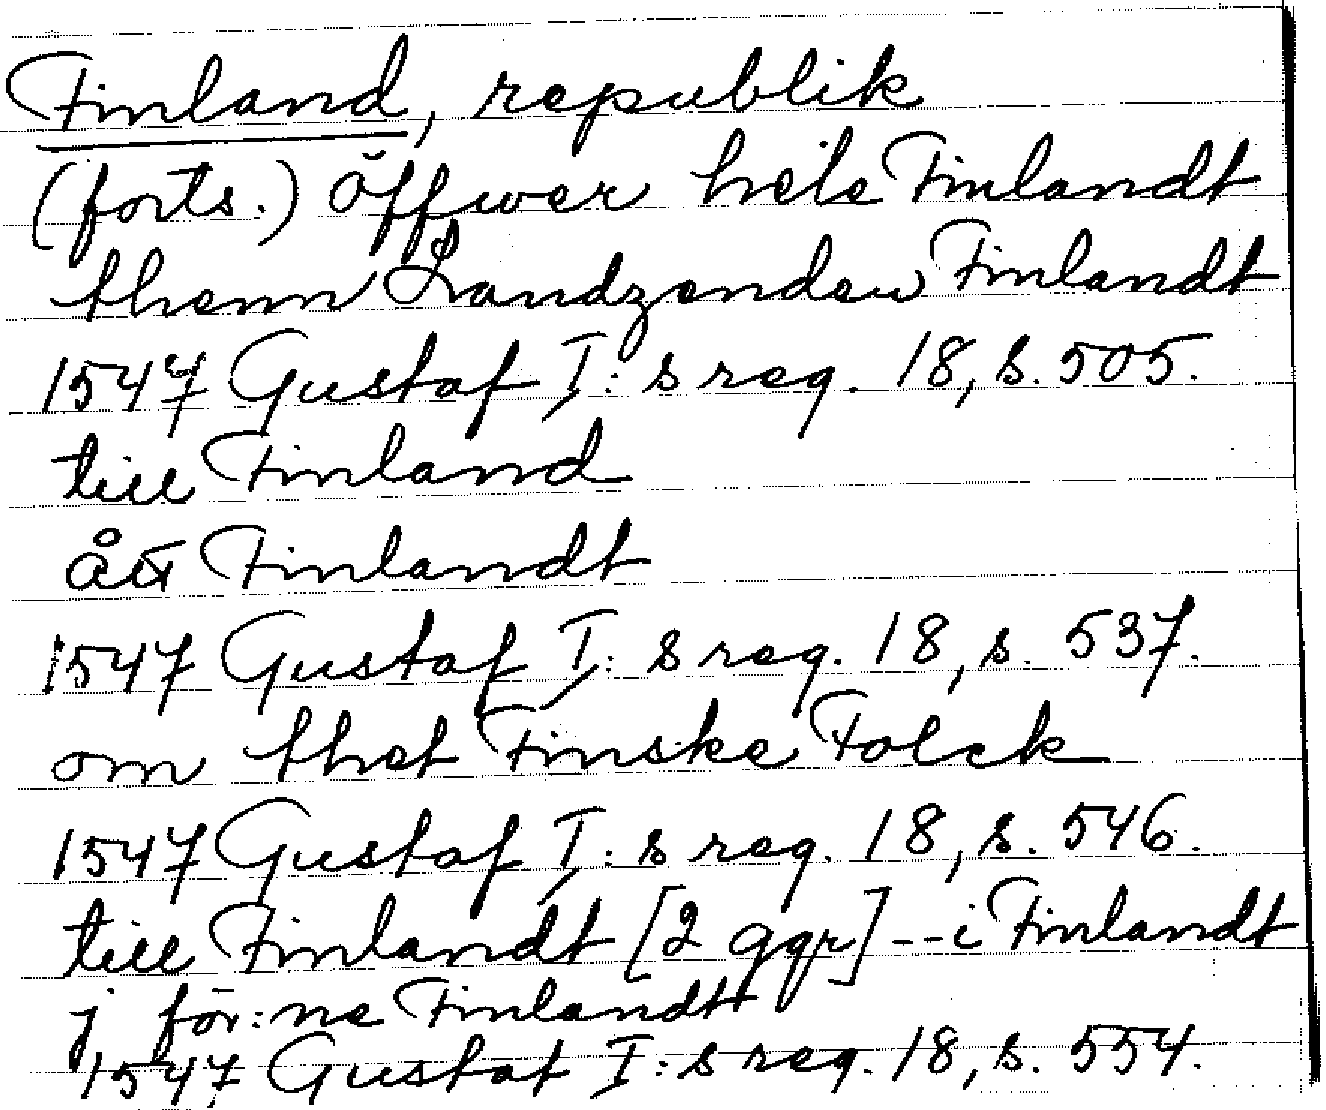 Finland, republik
(forts.) öffwer hele Finlandt
thenn Landzenden Finlandt
1547 Gustaf I:s reg. 18, s. 505.
till Finland
ått Finlandt
1547 Gustaf I:s reg. 18, s. 537.
om thet Finske Folck
1547 Gustaf I:s reg. 18, s. 546.
till Finlandt [2 ggr] -- i Finlandt
j för:ne Finlandt
1547 Gustaf I:s reg. 18, s. 554.